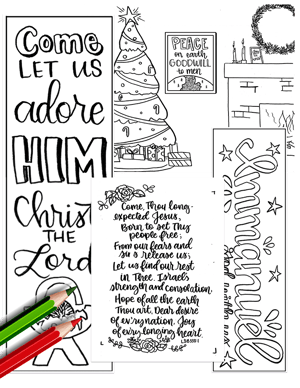 Come
LET US
adore
HIM
Christ
THE
Lord
PEACE
on earth,
GOODWILL
to men
Immanuel
Come, Thou long-
expected Jesus,
Born to set Thy
people free;
From our fears and
sins release us;
Let us find our rest
in Thee. Israel's
strength and consolation,
Hope of all the earth
Thou art, Dear desire
of ev'ry nation, Joy
of every longing heart.